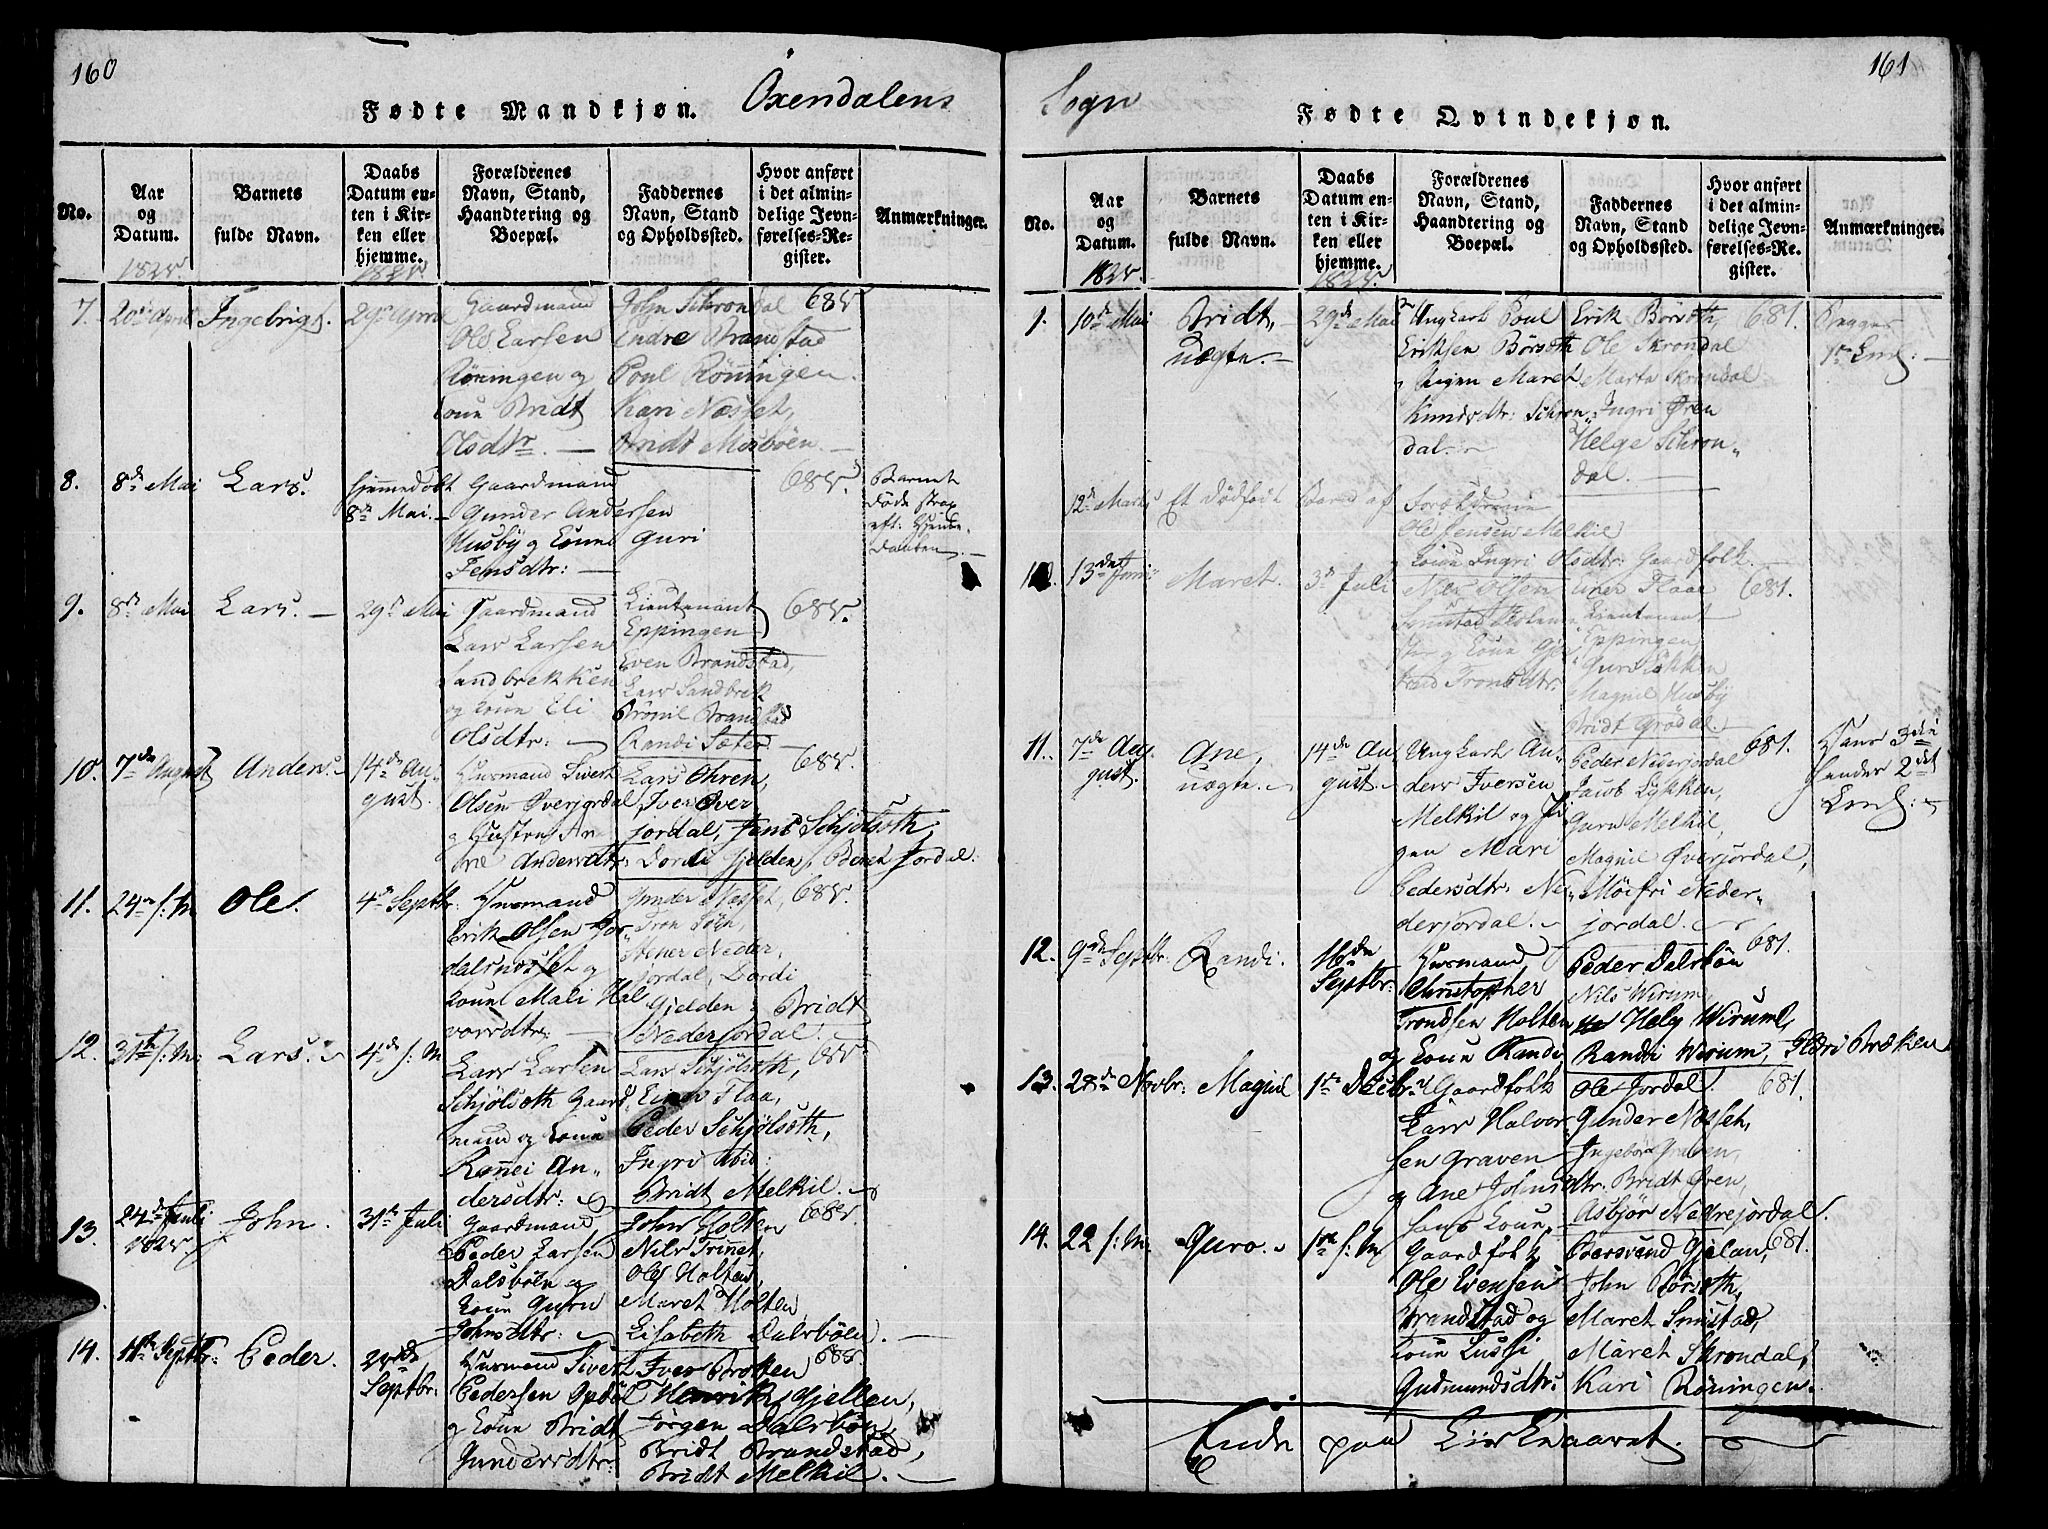 160
Öxendalens
Fødte Mandkjøn.
No.
Aar og Datum.
Barnets fulde Navn.
Daabs Datum enten i Kirken eller hjemme.
Forældrenes Navn, Stand, Haandtering og Boepæl.
Faddernes Navn, Stand og Opholdssted.
Hvor anført i det almindelige Jevnførelses-Register.
Anmærkninger.
7. 20de April Ingebrigt. 29de April
Gaardmand
Ole Larsen
Röningen og
Kone Bridt
Olsdtr.
John Schrondal
Endre Brandstad
Poul Röningen
Kari Næsset,
Bridt Mosböen.
8. 8de Mai Lars. Hjemmedöbt
8de Mai.
Gaardmand
Gunder Andersen
Husby og Kone Guri
Jensdtr:
Barnet
Döde strax
eft: Hjemme
Daaben.
9. 8de Mai Lars. 29de Mai
Gaardmand
Lars Larsen
Sandbrekken
og Kone Eli
Olsdtr:
Lieutenant
Eppingen
Even Brandstad,
Lars Sandbrek
Brönil Brandstad
Randi Sæter
10. 7de August Anders. 14de August.
Husmand Sivert
Olsen Överjordal
og Hustru
Andersdtr:
Lars Öhren,
Iver Över
jordal, Jens Schjölsoth,
Dordi Gjelden, Beret Jordal.
11. 24de s: M. Ole. 4de Septbr:
Husmand
Erik Olsen Jor
dalsnæsset og
Kone Mali Hal
vorsdtr:
Gunder Næsset,
Einer Neder
Jordal, Dordi
Gjelden og Bridt
Nederjordal.
12. 31te s: M: Lars. 4de s: M
Lars Larsen
Schjölsoth Gaard
mand og Kone
Ronnei An
dersdtr:
Lars Schjölsoth,
Einer Flaa,
Peder Schjölsoth,
Ingri
Bridt Melkil.
13. 24de Juli John. 31te Juli
Gaardmand
Peder Larsen
Dalsböen og
Kone Guru
Johnsdtr:
John Holten
Nils Trinnet,
Ole Holten,
Maret Holten,
Lisabeth Dalsböen.
14. 11te Septbr: Peder. 25de
Septbr:
Husmand Sivert
Pedersen Opdöl
og Kone Bridt
Gundersdtr:
Iver Brækken
Henrik Gjellen,
Jorgen Dalsböen,
Bridt Brandstad,
Bridt Melkil.
161
Sogn
Fødte Qvindekjøn.
No.
Aar og Datum.
Barnets fulde Navn.
Daabs Datum enten i Kirken eller hjemme.
Forældrenes Navn, Stand, Haandtering og Boepæl.
Faddernes Navn, Stand og Opholdssted.
Hvor anført i det almindelige Jevnførelses-Register.
Anmærkninger.
9. 10de Mai Bridt,
uægte. 29de Mai
Ungkarl Poul
Eriksen Börsoth
Pigen Maret
Knudsdtr: Schron
dal.
Erik Börsoth,
Ole Skrondal
Marta Skrondal
Ingri Øren
Helge Schron
dal.
681.
Begges
1te Leiers:
12de Marts Et Dödfödt Barn af Forældrene
Ole Jensen Melkil
og Kone Ingri Olsdtr: Gaardfolk.
10. 13de Juni Maret. 3de Juli
Nils Olsen
Einer Flaae
Lieutenant
Eppingen,
Guru Lökken
Magnil Husby
Bridt Grödal.
681.
11. 7de August. Ane,
uægte. 14de August.
Ungkarl An
ders Iversen
Melkil og Pi
gen Mari
Pedersdtr: Ne
derjordal.
Peder Nederjordal
Jacob Lykken,
Guru Melkil,
Magnil Øverjordal,
Möifri Neder
jordal.
681.
Hans 3die
hendes 2det
12. 9de Septbr: Randi. 16de
Septbr:
Husmand
Christopher
Trondsen Holten
og Kone Randi
Peder Dalsböen
Nils Wirum,
Helg Wirum,
Randi Wirum, Brækken
681.
13. 28de Novbr: Magnil 1te Decbr:
Gaardfolk
Lars Halvor
sen Graven
og Ane Johnsdtr:
hans Kone
Ole Jordal.
Gunder Næsset,
Ingeborg Graven,
Bridt Øren,
Asbjör Nedrejordal.
681.
14. 22 s: M. Guro. 1te s: M
Gaardfolk
Ole Evensen
Brandstad og
Kone Lussi
Gudmundsdtr:
Bersvend Gjelan,
John Börsoth,
Maret Smistad,
Maret Skrondal,
Kari Röningen.
681.
Ende paa Kirkeaaret.